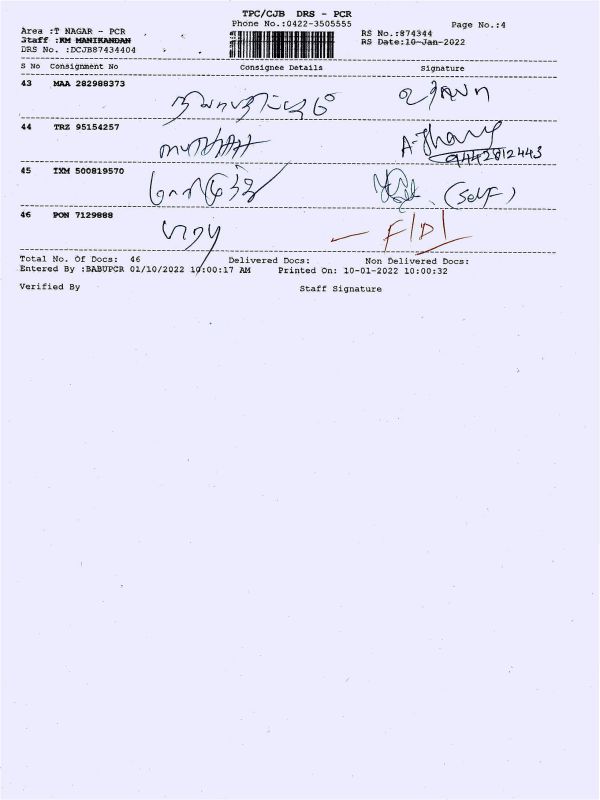 TPC/CJB DRS - PCR
Phone No.:0422-3505555
Page No.:4
Area :T NAGAR - PCR
Staff :KM MANIKANDAN
DRS No. :DCJB87434404
RS No.:874344
RS Date:10-Jan-2022
S No Consignment No Consignee Details Signature
43 MAA 282988373
44 TRZ 95154257
9442812443
45 TXM 500819570 (Self)
46 PON 7129888 பாபு
Total No. Of Docs: 46 Delivered Docs: Non Delivered Docs:
Entered By :BABUPCR 01/10/2022 10:00:17 AM Printed On: 10-01-2022 10:00:32
Verified By Staff Signature